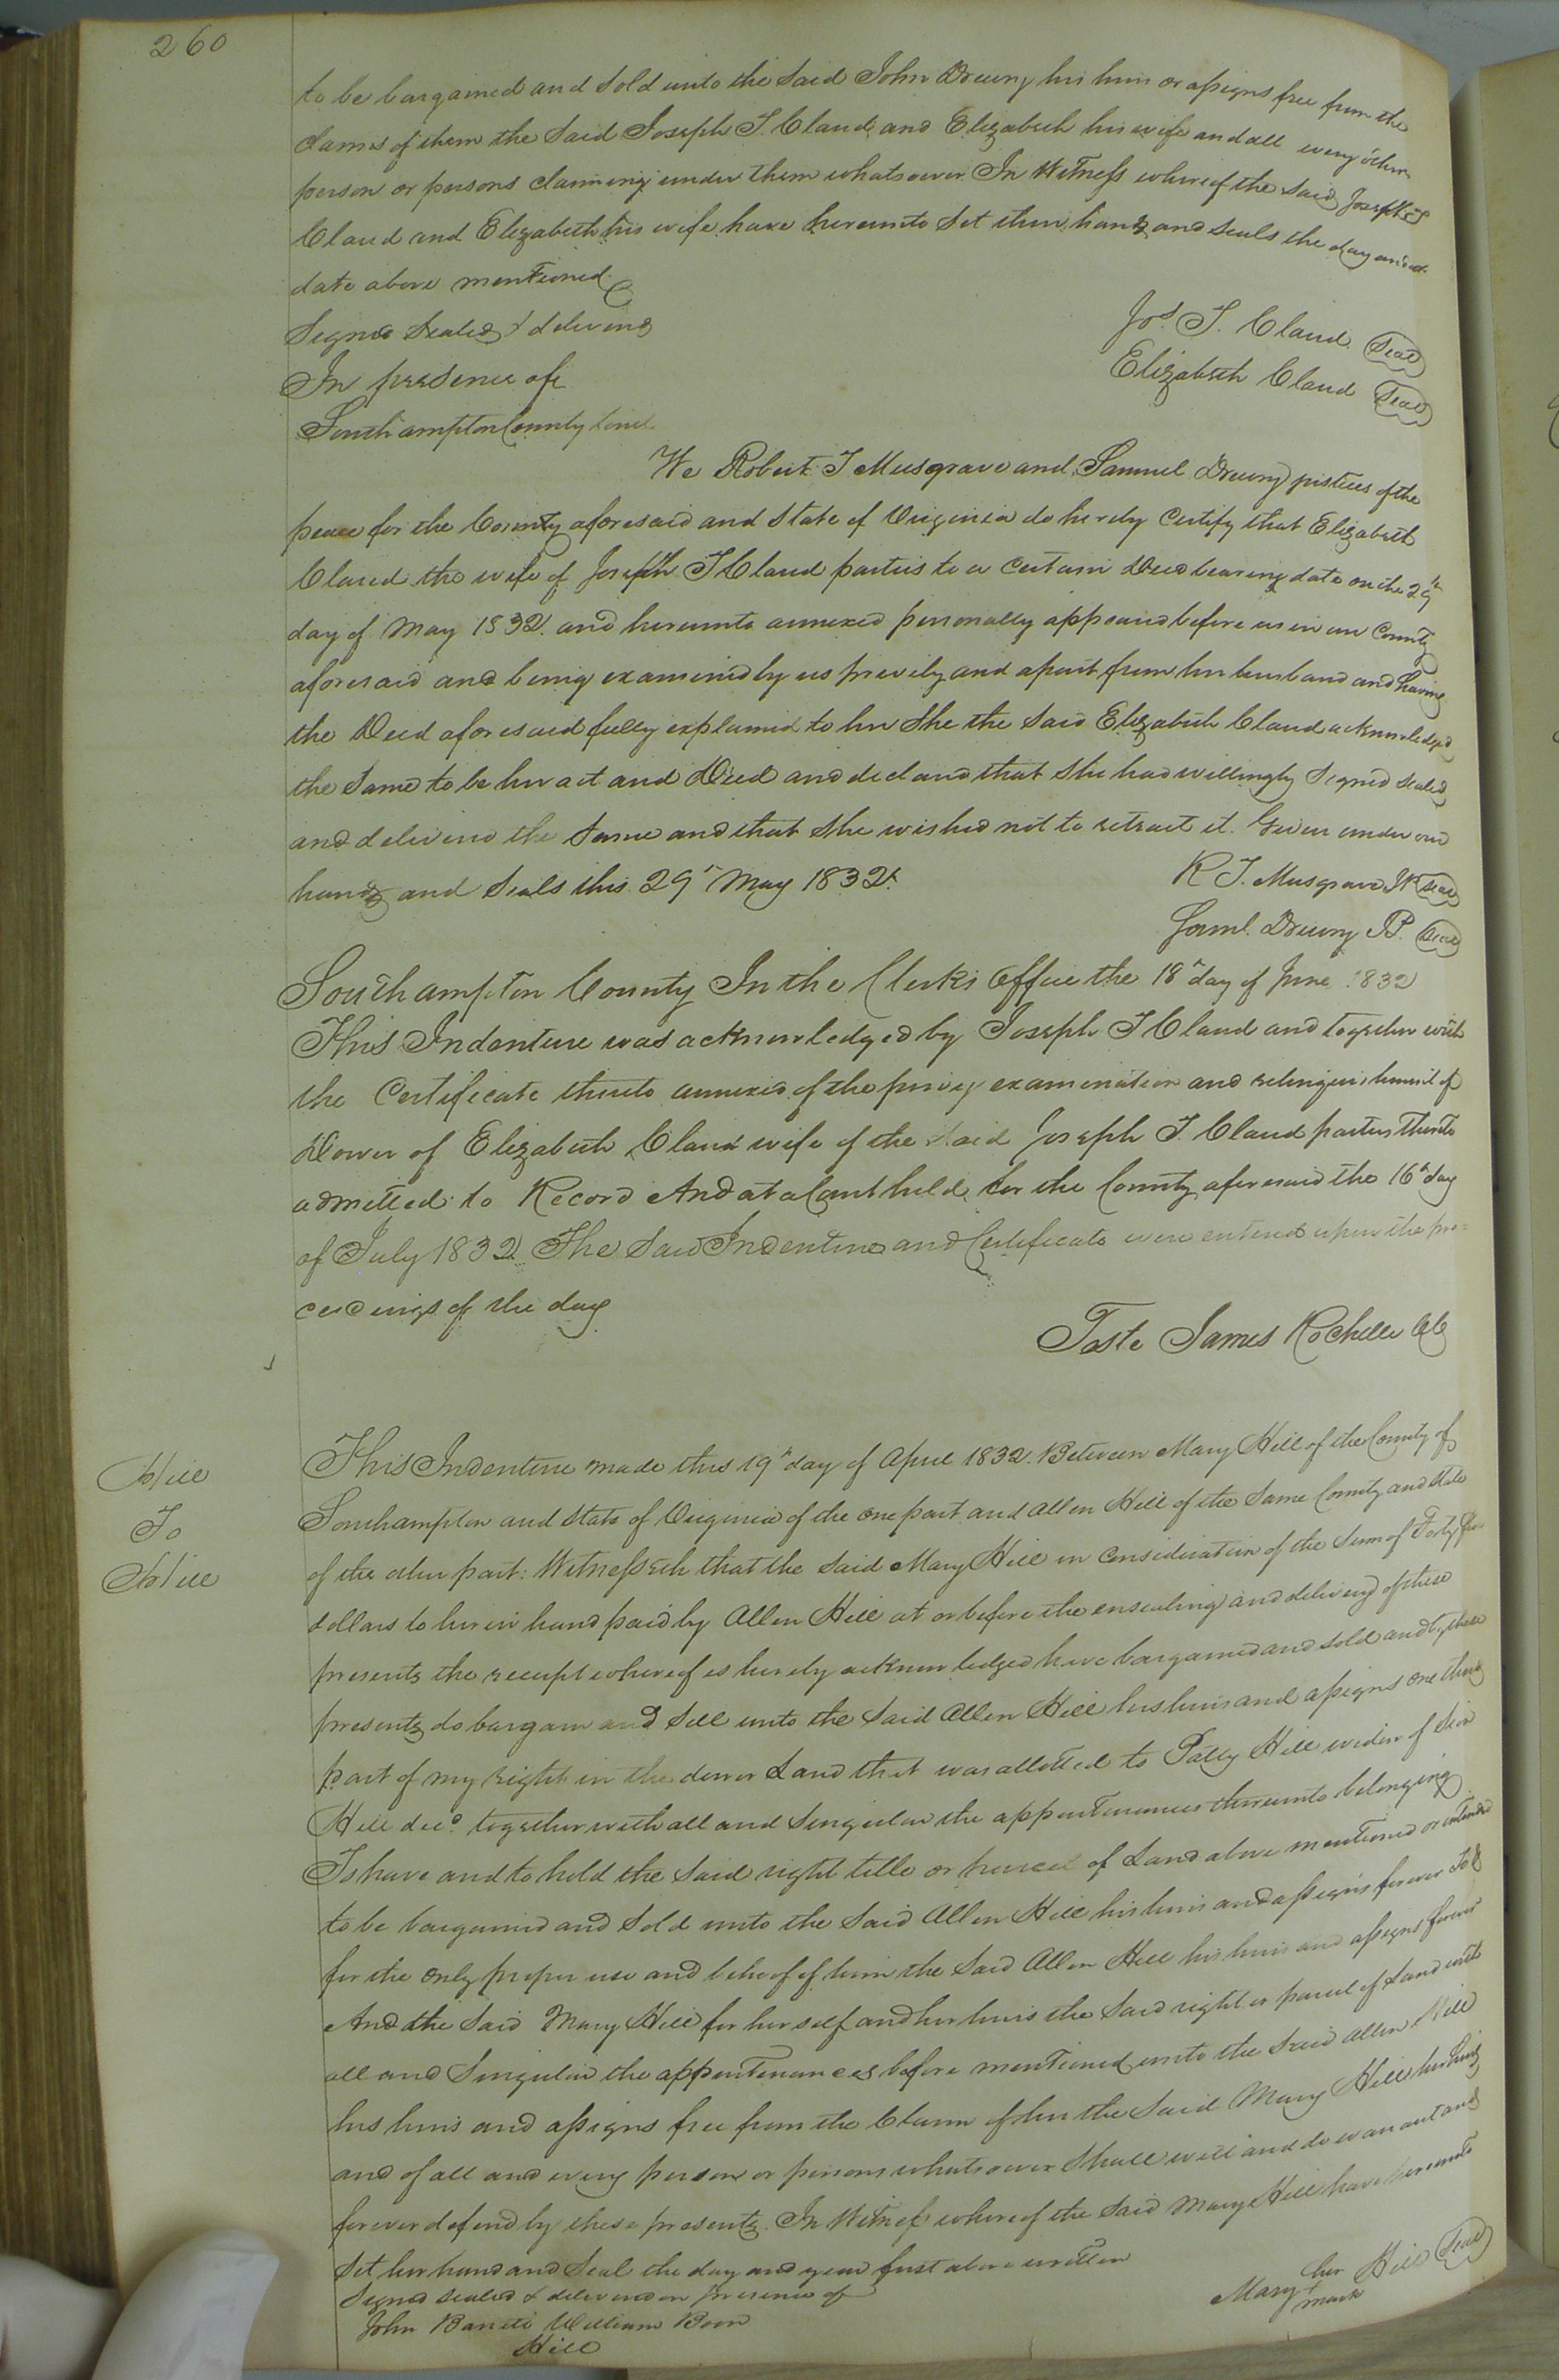 260
to be bargained and sold unto the said John Drewry his heirs or assigns free from the
claims of them the said Joseph T. Claud and Elizabeth his wife and all every other
person or persons claiming under them whatsoever In Witness whereof the said Joseph T
Claud and Elizabeth his wife have hereunto set their hands and seals the day and
date above mentioned
Signed Sealed & delivered
In presence of
Jos T. Claud Seal
Elizabeth Claud Seal
Southampton County towit
We Robert T Musgrave and Samuel Drewry justices of the
peace for the County aforesaid and State of Virginia do hereby Certify that Elizabeth
Claud the wife of Joseph T Claud parties to a certain Deed bearing date on the 29th
day of May 1832 and hereunto annexed personally appeared before us in our County
aforesaid and being examined by us privily and apart from her husband and having
the Deed aforesaid fully explained to her She the said Elizabeth Claud acknowledged
the same to be her act and Deed and declared that she had willingly signed sealed
and delivered the same and that she wished not to retract it. Given under our
hands and seals this 29th May 1832.
R T. Musgrave JP Seal
Saml. Drewry JP. Seal
Southampton County In the Clerks Office the 18th day of June 1832
This Indenture was acknowledged by Joseph T Claud and together with
the Certificate thereto annexed of the privy examination and relinquishment of
Dower of Elizabeth Claud wife of the said Joseph T. Claud parties thereto
admitted to Record And at a Court held for the County aforesaid the 16th day
of July 1832 The said Indenture and Certificate were entered upon the pro=
ceedings of the day
Teste James Rochelle CC
Hill
To
Hill
This Indenture made this 19th day of April 1832. Between Mary Hill of the County of
Southampton and State of Virginia of the one part and Allen Hill of the same County and State
of the other part: Witnesseth that the said Mary Hill in consideration of the sum of Forty
dollars to her in hand paid by Allen Hill at or before the ensealing and delivery of these
presents the receipt whereof is hereby acknowledged have bargained and sold and by these
presents do bargain and sell unto the said Allen Hill his heirs and assigns one third
part of my right in the dower Land that was allotted to Patsy Hill widow of Sion
Hill decd. together with all and singular the appurtenances thereunto belonging
To have and to hold the said right title or parcel of Land above mentioned or intended
to be bargained and sold unto the said Allen Hill his heirs and assigns forever To &
for the only proper use and behoof of him the said Allen Hill his heirs and assigns forever
And the said Mary Hill for herself and her heirs the said right or parcel of Land with
all and singular the appurtenances before mentioned unto the said Allen Hill
his heirs and assigns free from the Claim of her the said Mary Hill her heirs
and of all and every person or persons whatsoever shall will and do warrant and
forever defend by these presents. In Witness whereof the said Mary Hill have hereunto
set her hand and seal the day and year first above written
Signed sealed & delivered in presence of
John Barrett William Boon
Hill
her
Mary + Hill Seal
mark